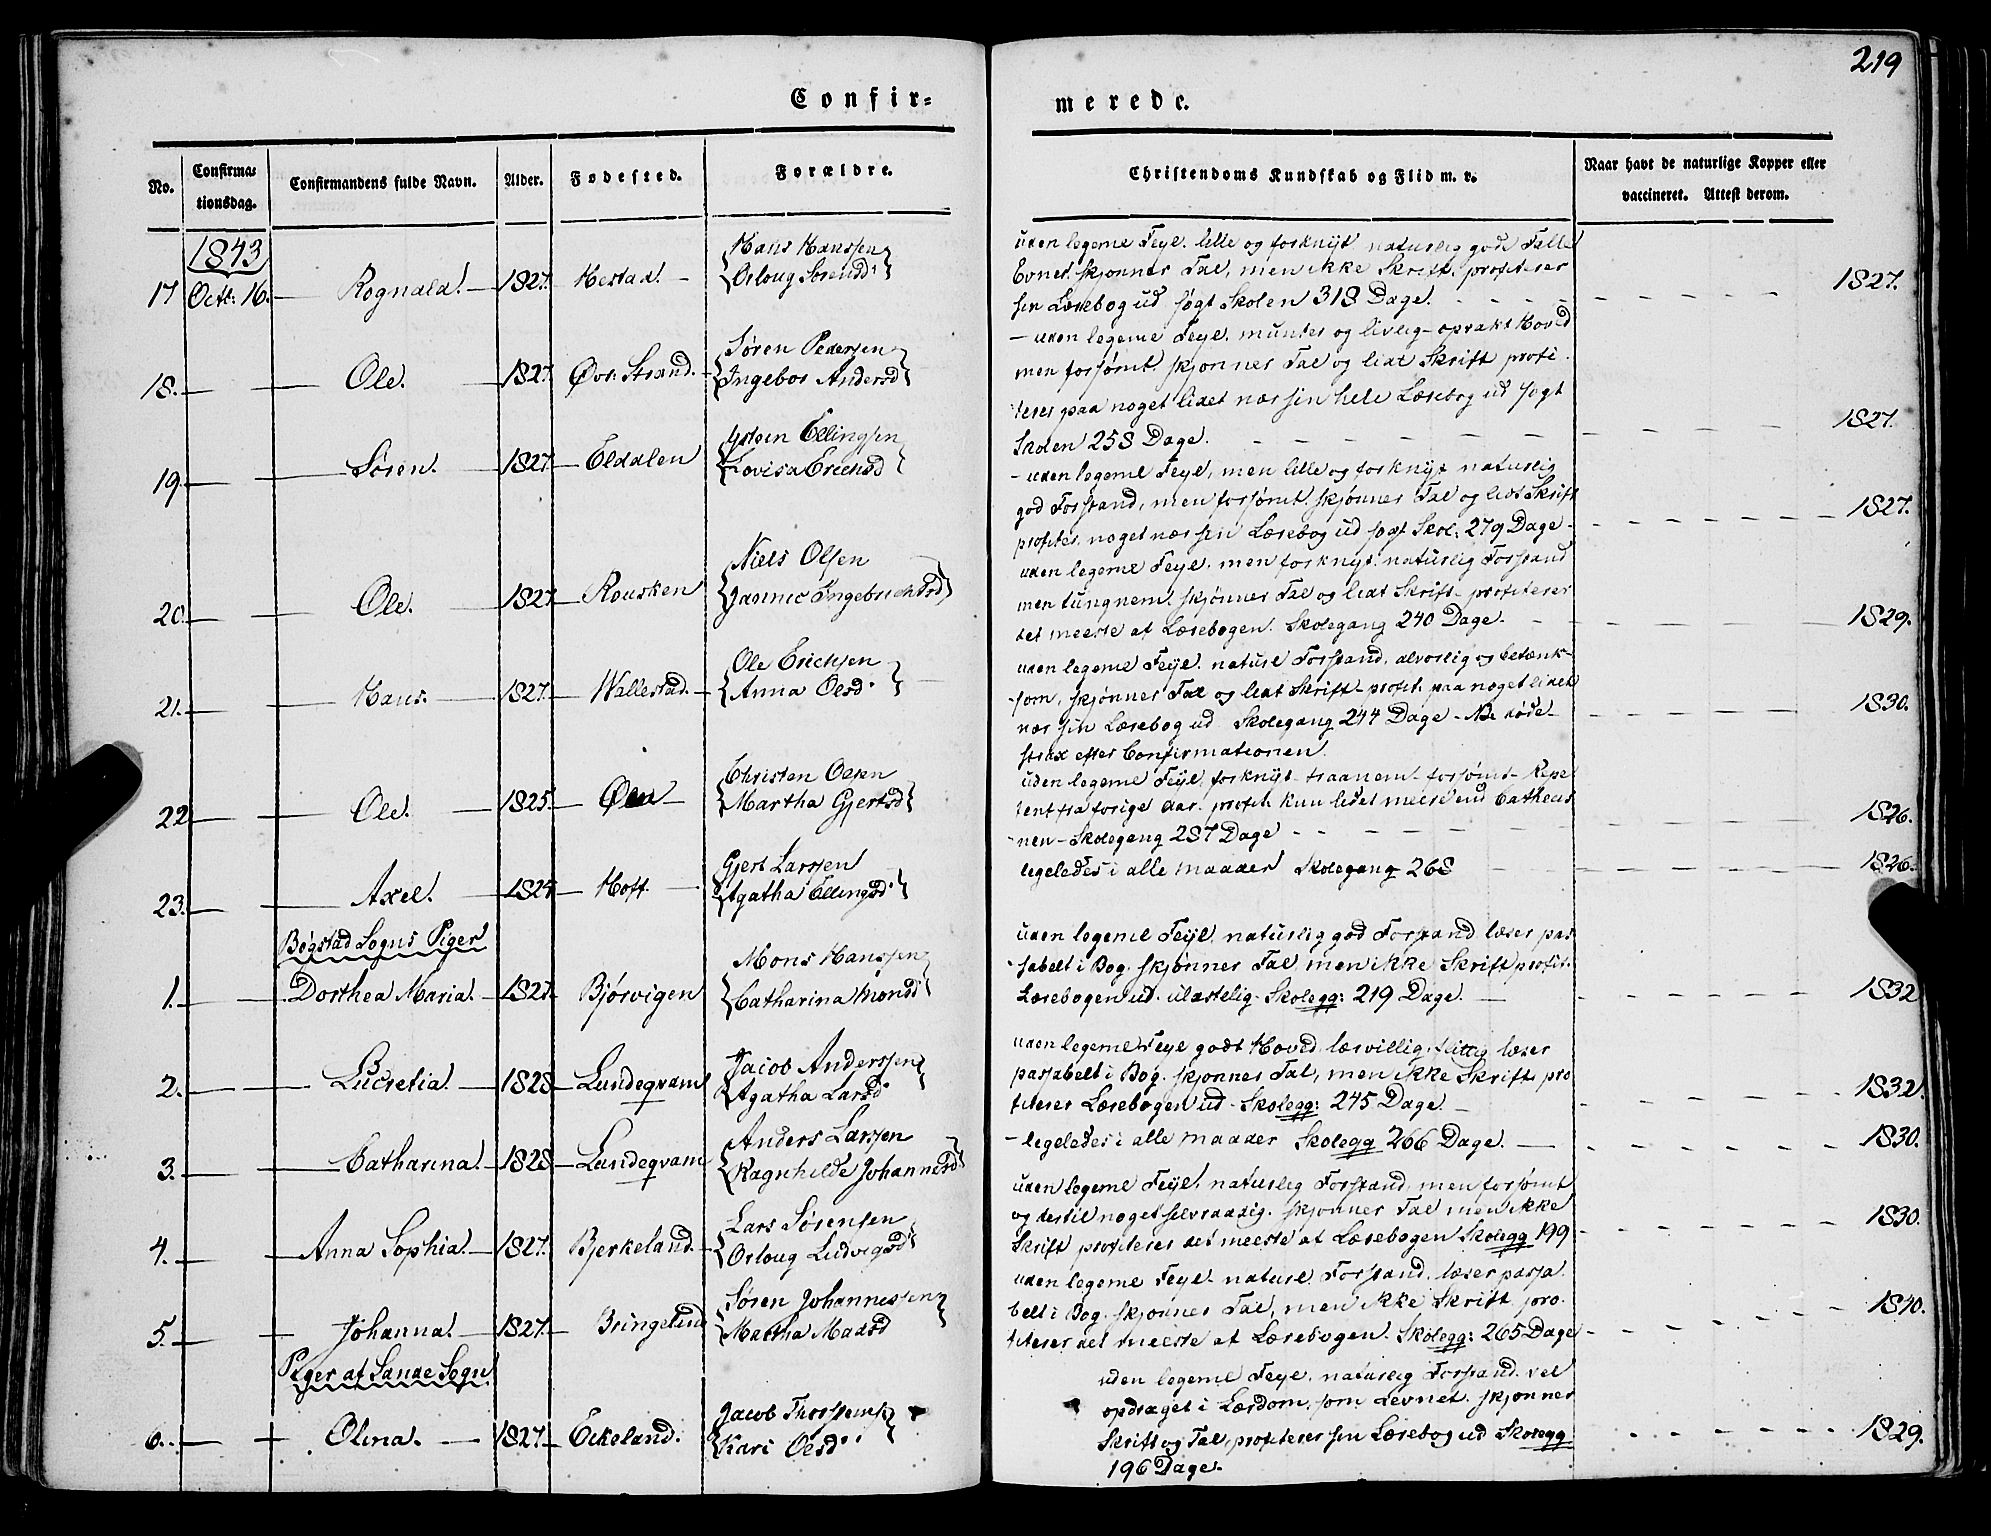 219
Confir-
merede.
No.
Confirma-
tionsdag.
Confirmandens fulde Navn.
Alder.
Fødested.
Forældre.
Christendoms Kundskab og Flid m. v.
Naar havt de naturlige Kopper eller
vaccineret. Attest derom.
1843
17 Octb: 16. Rognald. 1827. Hestad.
Hans Hanssen
Orloug Sørensd.
uden legeme Feyl. lille og forknyt naturlig gode Sielle
Evner. skjønner Tal, men ikke Skrift. profiterer
sin Læsebog ud søgt Skolen 318 Dage.
1827.
18. Ole. 1827. Øvr: Strand.
Søren Pedersen
Ingebor Andersd
uden legeme Feyl. munter og livlig - oprakt Hoved
men forsømt. skjønner Tal og lidt Skrift profi
terer paa noget lidet nær sin hele Læsebog ud søgt
Skolen 258 Dage.
1827.
19. Søren. 1827. Eldalen
Ellingsen
Lovisa Erichsd
uden legeme Feyl, men lille og forknyt naturlig
god Forstand, men forsømt. skjønner Tal og lidt Skrift
profiter. noget nær sin Læsebog ud søgt Skol: 279 Dage
1827.
20. Ole. 1827. Rousken
Niels Olsen
Jannic Ingebrichtsd
uden legeme Feyl. men forknyt. naturlig Forstand
men tungnem. skjønner Tal og lidt Skrift - profiterer
det meeste af Læsebogen. Skolegang 240 Dage.
1829.
21. Hans. 1827. Wallestad.
Ole Erichsen
Anna Olsd.
uden legeme Feyl. naturl Forstand, alvorlig og betænk-
som, skjønner Tal og lidt Skrift - profit. paa noget lidet
nær sin Læsebog ud Skolegang 244 Dage - NB døde
strax efter Confirmationen.
1830.
22 Ole. 1825. Øen
Christen Olsen
Martha Gjertsd
uden legeme Feyl forknyt - traanem - forsømt - Repe
tent fra forige Aar. profit. kun lidet meere end Cathecis
nen - Skolegang 287 Dage
1826.
23. Axel. Hoff.
Gjert Larssen
Agatha Ellingsd.
legeledes i alle maader Skolegang 268
1826.
Bøgstad Sogns Piger
1. Dorthea Maria. 1827. Bjørvigen
Mons Hanssen
Catharina Monsd
uden legeme Feyl. naturlig god Forstand læser pas
sabelt i Bog. skjønner Tal, men ikke Skrift profit.
Læsebogen ud. Skolegg: 219 Dage.
1832
2. Lucretia. 1828 Lundeqvam
Jacob Anderssen
Agatha Larsd
uden legeme Feyl godt Hoved lærvillig, flittig læser
passabelt i Bog. skjønner Tal, men ikke Skrift pro
fiterer Læsebogen ud - Skolegg: 245 Dage.
1832.
3. Catharina. 1828 Lundeqvam
Anders Larssen
Ragnhilde Johannesd
legeledes i alle maader Skolegg 266 Dage.
1830.
4. Anna Sophia. 1827. Bjerkeland.
Lars Sørensen
Orloug Ludvigsd
uden legeme Feyl, naturlig Forstand, men forsømt
og dertil noget selvraadig. skjønner Tal men ikke
Skrift profiterer det meeste af Læsebogen Skolegg 199
1830.
5. Johanna. 1827. Bringelund
Søren Johannessen
Martha Madsd
uden legeme Feyl - naturl Forstand. læser passa
belt i Bog. skjønner Tal, men ikke Skrift. pro.
fiterer det meeste af Læsebogen. Skolegg: 265 Dage
1840.
Piger af Sande Sogn
6. Olina. 1827. Eikeland.
Jacob Thorstens
Kari Olsd
uden legeme Feyl. naturlig Forstand. vel
opdraget i Lærdom, som Levnet. skjønner
Skrift og Tal, profiterer sin Læsebog ud Skolegg
196 Dage.
1829.